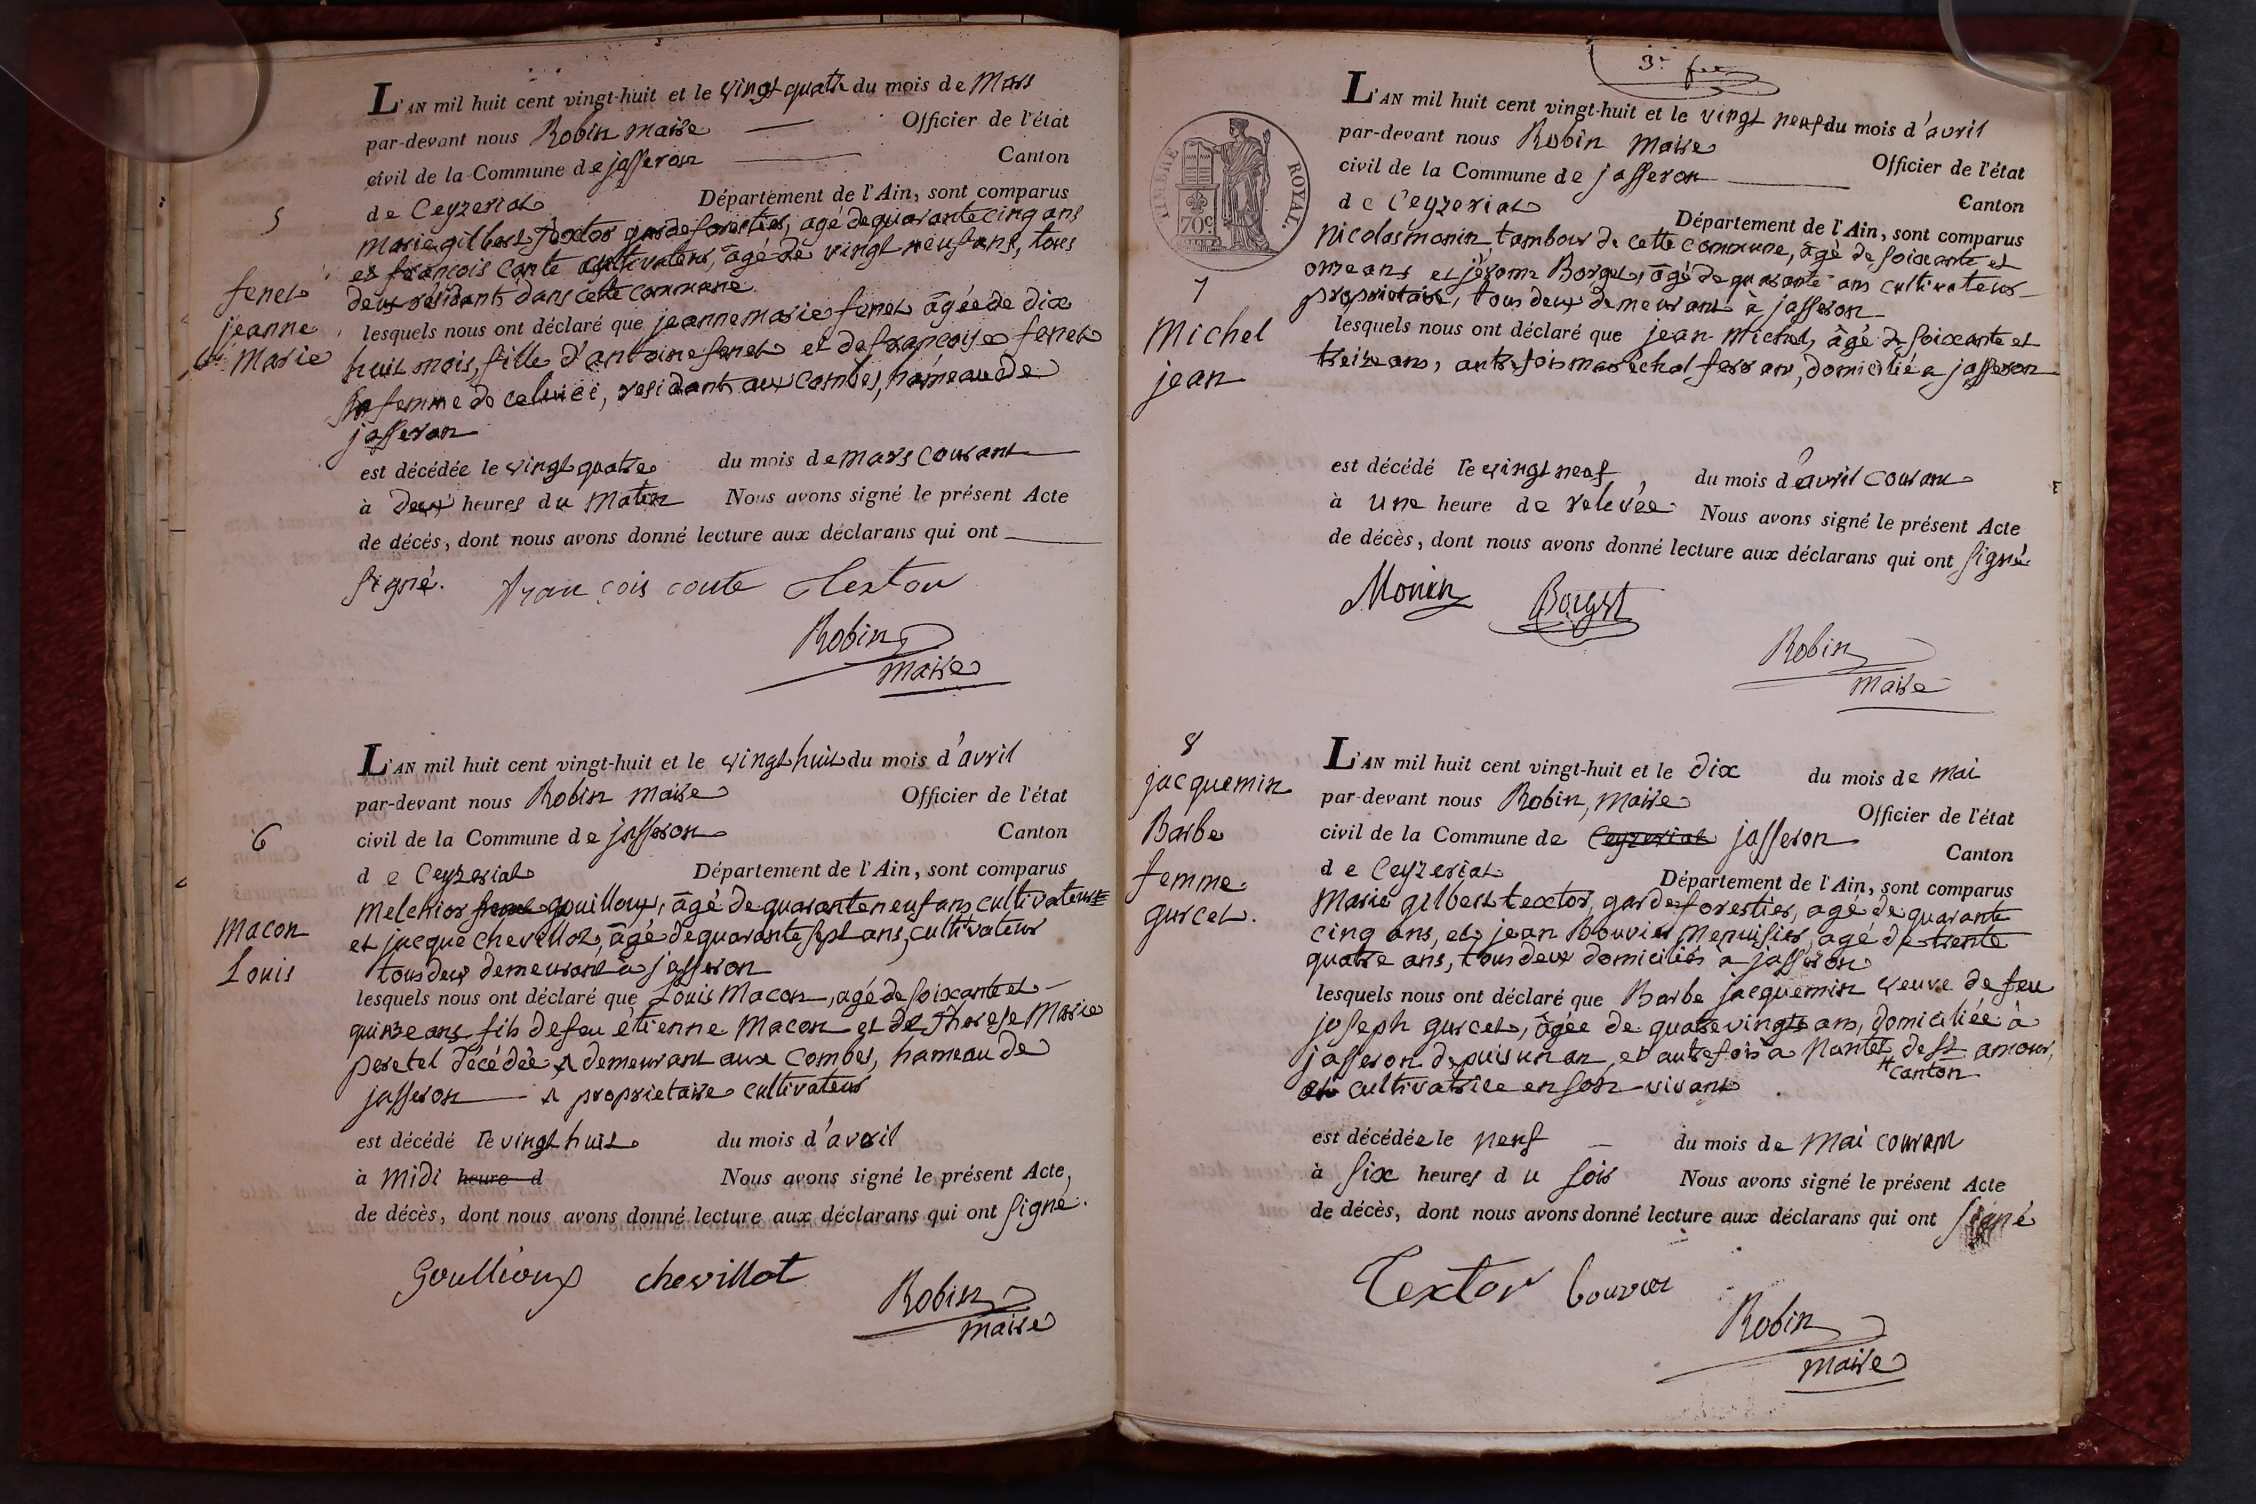 5
fenet
jeanne
Marie
L'AN mil huit cent vingt-huit et le vingt quatre du mois de Mars
par-devant nous Robin maire Officier de l'état
civil de la Commune de jasseron Canton
de Ceyzeriat Département de l'Ain, sont comparus
Marie gilbert textor garde forestier, agé de quarante cinq ans
et françois conte cultivateur, âgé de vingt neuf ans, tous
deux résidants dans cette commune
lesquels nous ont déclaré que jeanne marie fenet âgée de dix
huit mois, fille d'antoine fenet et de françoise fenet
femme de celui ci, residants aux combes, hameau de
jasseron
est décédée le vingt quatre du mois de mars courant
à deux heures du matin Nous avons signé le présent Acte
de décés, dont nous avons donné lecture aux déclarans qui ont
signé. françois conte Textor
Robin
maire
6
Macon
Louis
L'AN mil huit cent vingt-huit et le vingt huit du mois d'avril
par-devant nous Robin maire Officier de l'état
civil de la Commune de jasseron Canton
de Ceyzeriat Département de l'Ain, sont comparus
Melchior gouilloux, âgé de quarante neuf ans cultivateur
et jacque chevillot, âgé de quarante sept ans, cultivateur
tous deux demeurant à jasseron
lesquels nous ont déclaré que Louis Macon, agé de soixante et
quinze ans fils de feu étienne Macon et de therese Marie
peretel décédée demeurant aux Combes, hameau de
jasseron proprietaire cultivateur
est décédé le vingt huit du mois d'avril
à midi heure d Nous avons signé le présent Acte
de décès, dont nous avons donné lecture aux déclarans qui ont signé.
Goullioux chevillot
Robin
maire
3e fet
TIMBRE ROYAL.
70c
7
Michel
jean
L'AN mil huit cent vingt-huit et le vingt neuf du mois d'avril
par-devant nous Robin Maire Officier de l'état
civil de la Commune de jasseron Canton
de Ceyzeriat Département de l'Ain, sont comparus
Nicolas monin tambour de cette commune, âgé de soixante et
onze ans et jérome Borget, âgé de quarante ans cultivateur
proprietaire, tous deux demeurant à jasseron
lesquels nous ont déclaré que jean Michel, âgé de soixante et
treize ans, autrefois maréchal ferran, domicilié a jasseron
est décédé le vingt neuf du mois d'avril courant
à une heure de relevée Nous avons signé le présent Acte
de décès, dont nous avons donné lecture aux déclarans qui ont signé
Monin Borget
Robin
maire
8
jacquemin
Barbe
femme
gurcel.
L'AN mil huit cent vingt-huit et le dix du mois de mai
par-devant nous Robin, maire Officier de l'état
civil de la Commune de Ceyzeriat jasseron Canton
de Ceyzeriat Département de l'Ain, sont comparus
Marie gilbert textor, garde forestier, agé de quarante
cinq ans, et jean Bouvier Menuisier, agé de trente
quatre ans, tous deux domiciliés à jasseron
lesquels nous ont déclaré que Barbe jacquemin veuve de feu
joseph gurcel, âgée de quatre vingts ans, domiciliée à
jasseron depuis un an, et autrefois a Nantet de st amour,
canton
cultivatrice en son vivant
est décédée le neuf du mois de mai courant
à six heures du soir Nous avons signé le présent Acte
de décès, dont nous avons donné lecture aux déclarans qui ont signé
Textor bouvier
Robin
maire